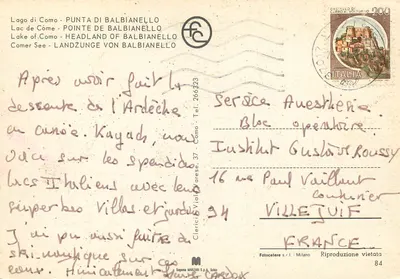 Lago di Como - PUNTA DI BALBIANELLO
Lac de Côme - POINTE DE BALBIANELLO
Lake of Como - HEADLAND OF BALBIANELLO
Comer See - LANDZUNGE VON BALBIANELLO
200
ITALIA
Après avoir fait la
descente de l'Ardèche
en canoë-Kayack, nous
voici sur les splendides
lacs Italiens avec leurs
superbes Villas et jardins
J'ai pu aussi faire du
ski nautique sur ces
eaux. Amicalement
Service Anesthésie
Bloc opératoire
Institut Gustave Roussy
16 rue Paul Vaillant
Couturier
94 VILLEJUIF
FRANCE
Como - Tel. 266323
Milano
Riproduzione vietata
84